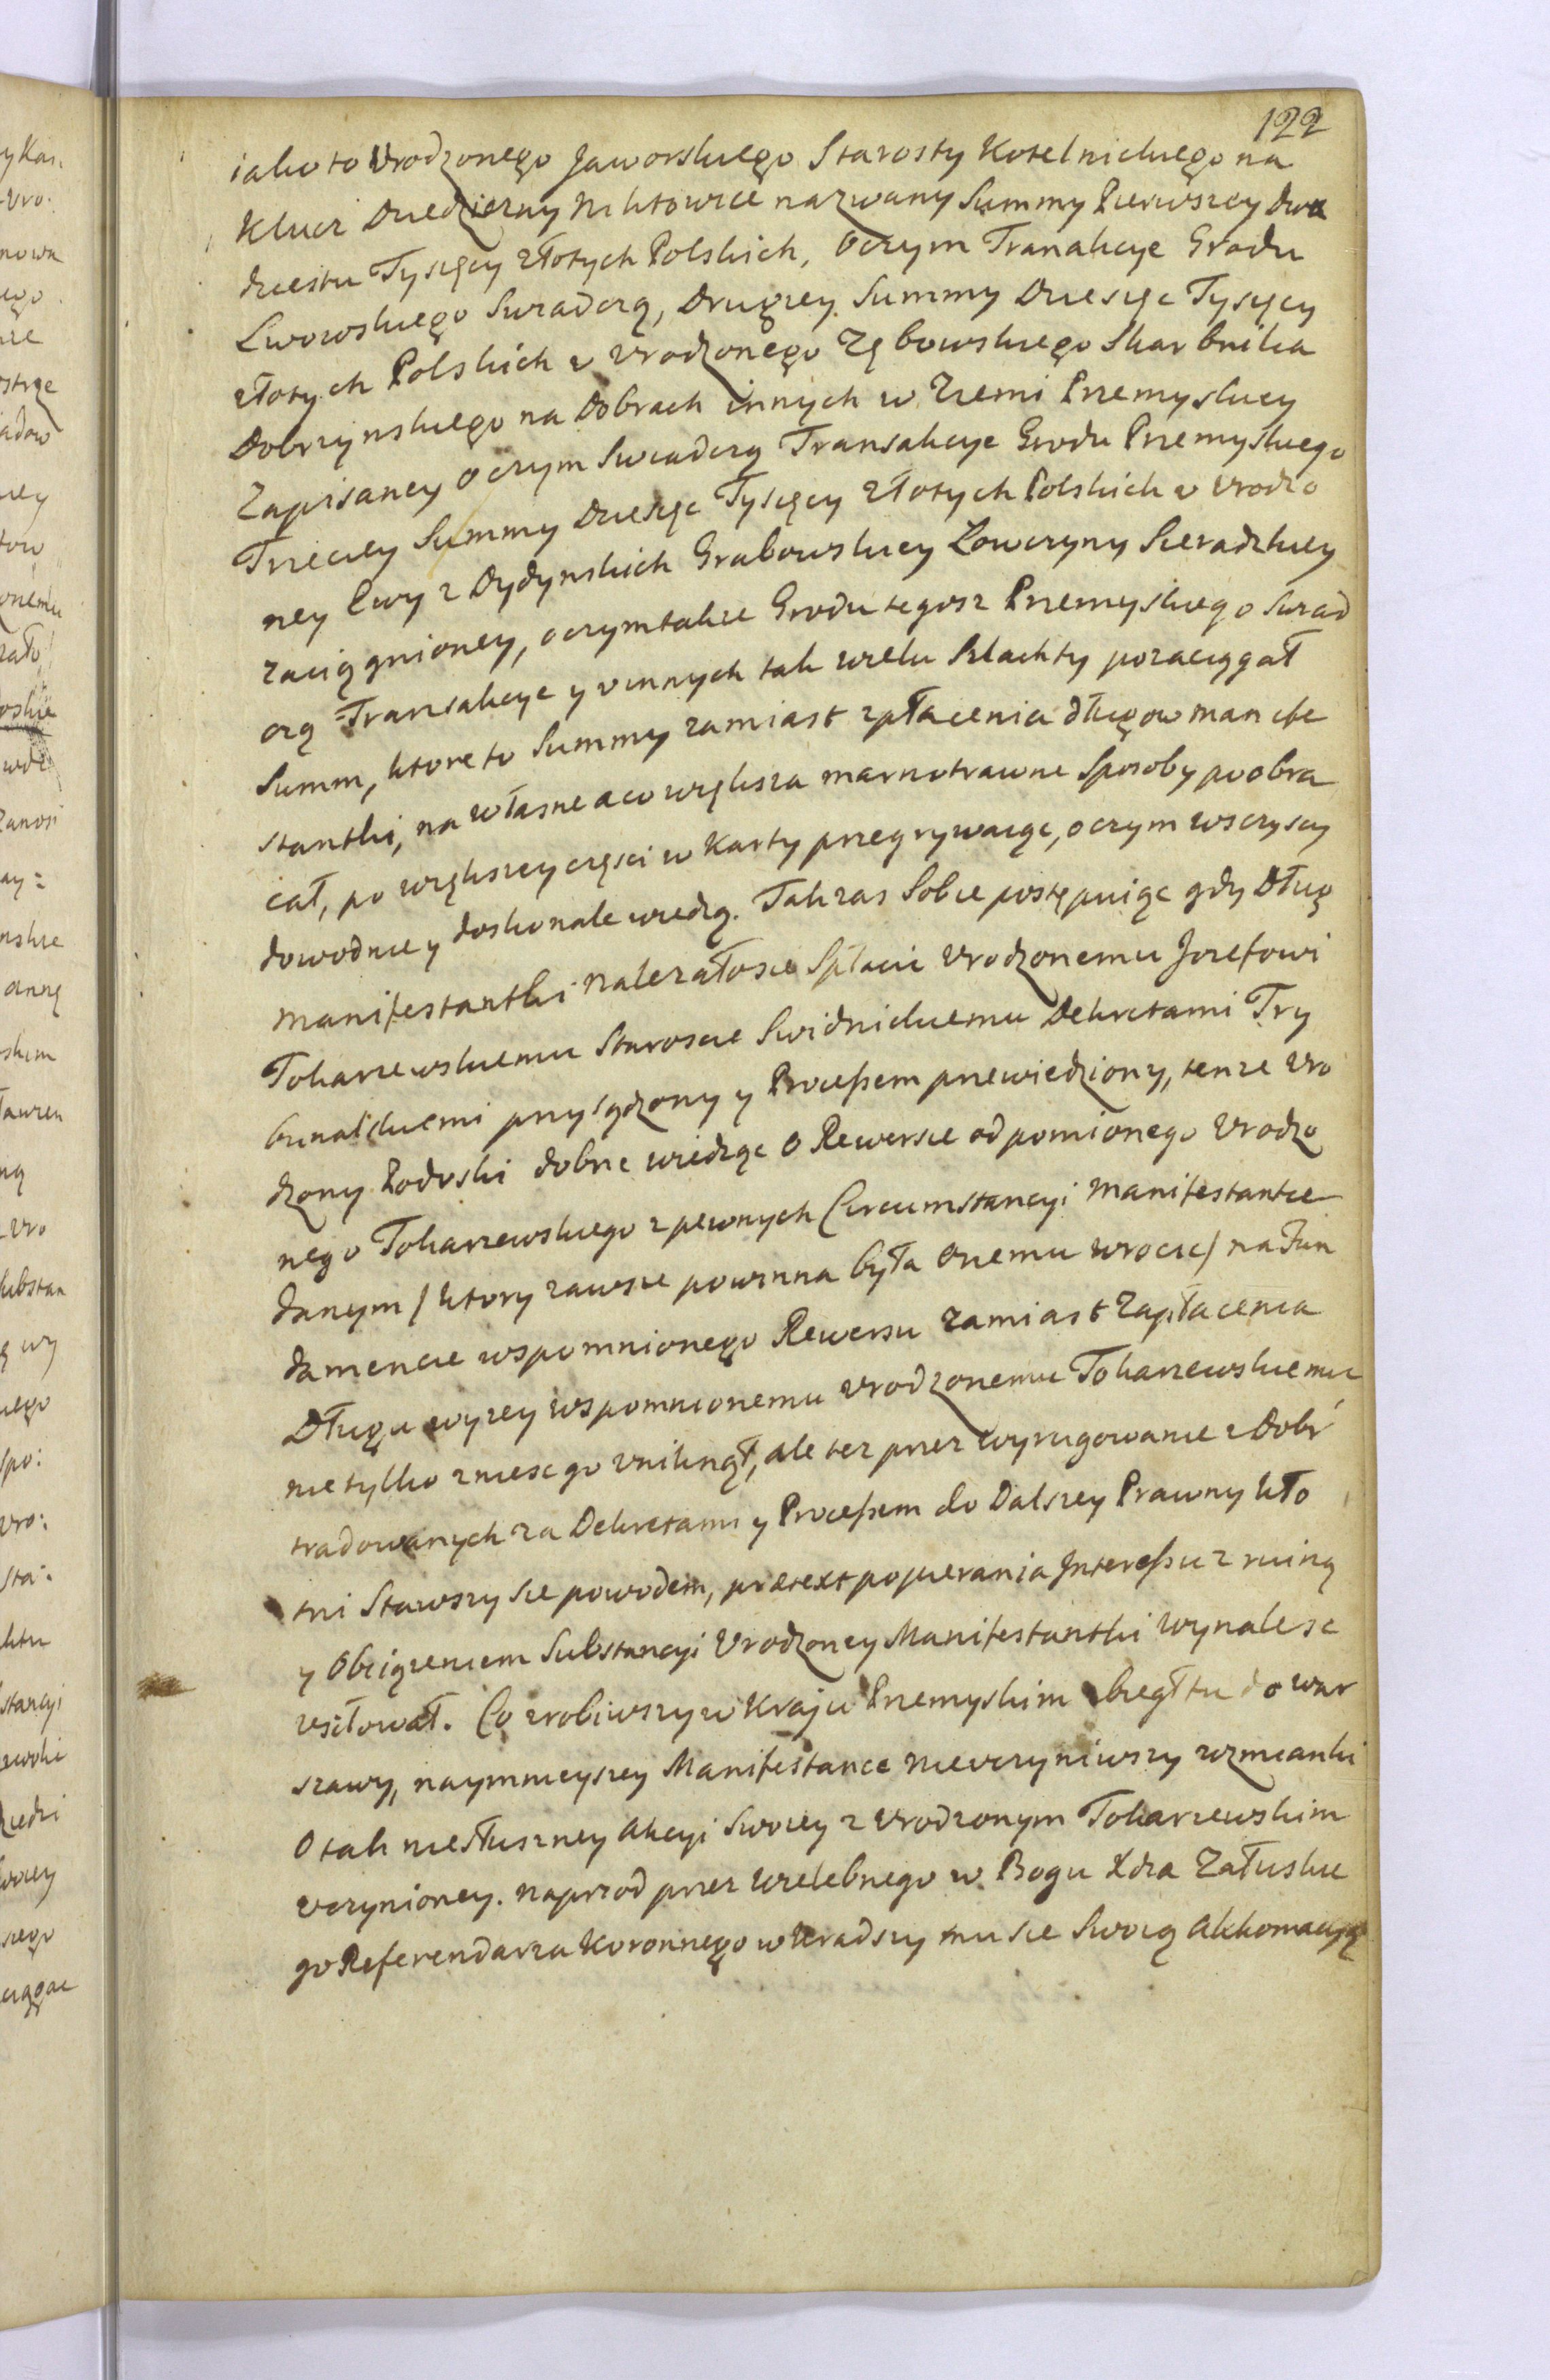 122
iako to Vrodzonego Jaworskiego Starosty Kotelnickiego na
Klucz Dziedziczny nazwany Summy Pierwszey dwa
dziestu Tysięcy złotych Polskich, oczym Tranakcye Grodu
Lwowskiego Swiadczą, Drugiey Summy Dziesięc Tysięcy
złotych Polskich v vrodzonego Zębowskiego Skarbnika
Dobrzynskiego na Dobrach innych w Ziemi Przemyskiey
Zapisaney oczym Swiadczą Transakcye Grodu Przemyskiego
Trzeciey Summy Dziesięc Tysięcy złotych Polskich v Vrodzo
ney Ewy z Dydynskich Grabowskiey Łowczyny Sieradzkiey
zaciągnioney, o czym takze Grodu tegosz Przemyskiego Swiad
czą Transakcye y v innych tak wielu Szlachty pozaciągał
Summ, ktore to Summy zamiast zpłacenia długow manife
stantki, na własne a co większa marnotrawne Sposoby poobra
cał, po większey części w Karty przegrywaiąc, o czym wszyscy
dowodnie y doskonale wiedzą. Tak zas Sobie postępuiąc gdy Dług
manifestantki nalezałosie Spłacic Vrodzonemu Jozefowi
Tokarzewskiemu Staroscie Swidnickiemu Dekretami Try
bunalskiemi przysądzony y Processem przewiedziony, tenze Vro
dzony Podoski dobrze wiedząc o Rewersie od pomionego Vrodzo
nego Tokarzewskiego z pewnych Circumstancyi manifestantce
danym / ktory zawsze powinna była onemu wrocic / na Fun
damencie wspomnionego Rewersu zamiast Zapłacenia
Długu wyzey wspomnionemu vrodzonemu Tokarzewskiemu
nie tylko zniesc go vniknął, ale tez przez wyrugowanie z Dobr
tradowanych za Dekretami y Processem do Dalszey Prawny kło
tni Stawszy sie powodem, prætext popierania Interessu z ruiną
y Obciązeniem Substancyi Vrodzoney Manifestantki wynalesc
vsiłował. Co zrobiwszy w Kraju Przemyskim biegł tu do war
szawy, naymnieyszey Manifestance nie vczyniwszy wzmianki
O tak niesłuszney Akcyi Swoiey z Vrodzonym Tokarzewskim
vczynioney. naprzod przez Wielebnego w Bogu Xdza Załuskie
go Referendarza Koronnego wkradszy mu sie Swoią Akkomacyą